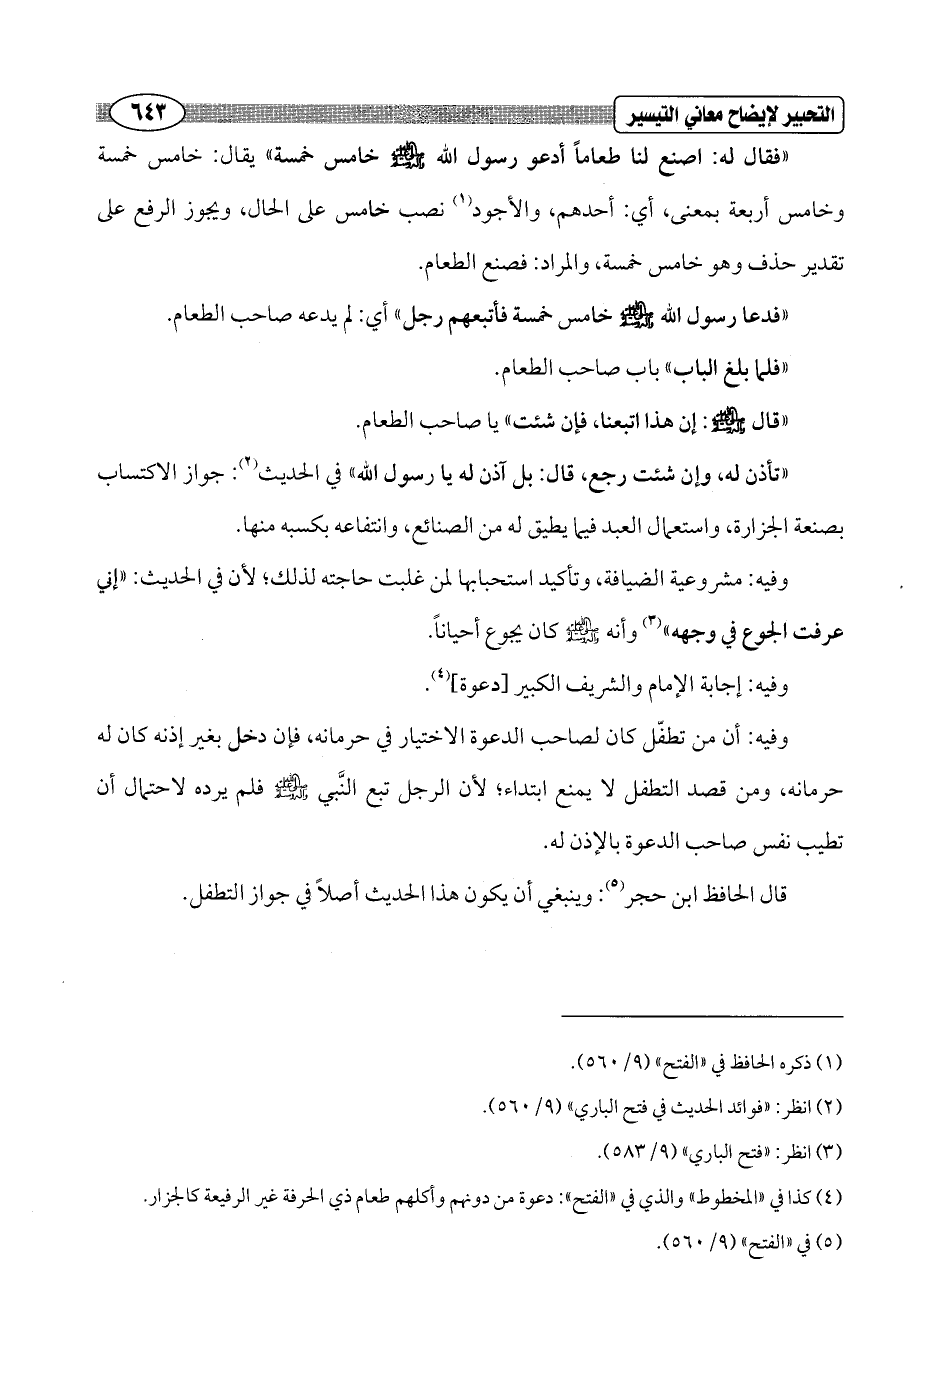 التحبير لإيضاح معاني التيسير
٦٤٣
«فقال له: اصنع لنا طعاماً أدعو رسول الله ﷺ خامس خمسة» يقال: خامس خمسة
وخامس أربعة بمعنى، أي: أحدهم، والأجود(١) نصب خامس على الحال، ويجوز الرفع على
تقدير حذف وهو خامس خمسة، والمراد: فصنع الطعام.
«فدعا رسول الله ﷺ خامس خمسة فأتبعهم رجل» أي: لم يدعه صاحب الطعام.
«فلما بلغ الباب» باب صاحب الطعام.
«قال ﷺ: إن هذا اتبعنا، فإن شئت» يا صاحب الطعام.
«تأذن له، وإن شئت رجع، قال: بل آذن له يا رسول الله» في الحديث(٢): جواز الاكتساب
بصنعة الجزارة، واستعمال العبد فيما يطيق له من الصنائع، وانتفاعه بكسبه منها.
وفيه: مشروعية الضيافة، وتأكيد استحبابها لمن غلبت حاجته لذلك؛ لأن في الحديث: «إني
عرفت الجوع في وجهه»(٣) وأنه ﷺ كان يجوع أحياناً.
وفيه: إجابة الإمام والشريف الكبير [دعوة](٤).
وفيه: أن من تطفّل كان لصاحب الدعوة الاختيار في حرمانه، فإن دخل بغير إذنه كان له
حرمانه، ومن قصد التطفل لا يمنع ابتداء؛ لأن الرجل تبع النَّبي ﷺ فلم يرده لاحتمال أن
تطيب نفس صاحب الدعوة بالإذن له.
قال الحافظ ابن حجر(٥): وينبغي أن يكون هذا الحديث أصلاً في جواز التطفل.
(١) ذكره الحافظ في «الفتح» (٩/ ٥٦٠).
(٢) انظر: «فوائد الحديث في فتح الباري» (٩/ ٥٦٠).
(٣) انظر: «فتح الباري» (٩/ ٥٨٣).
(٤) كذا في «المخطوط» والذي في «الفتح»: دعوة من دونهم وأكلهم طعام ذي الحرفة غير الرفيعة كالجزار.
(٥) في «الفتح» (٩/ ٥٦٠).